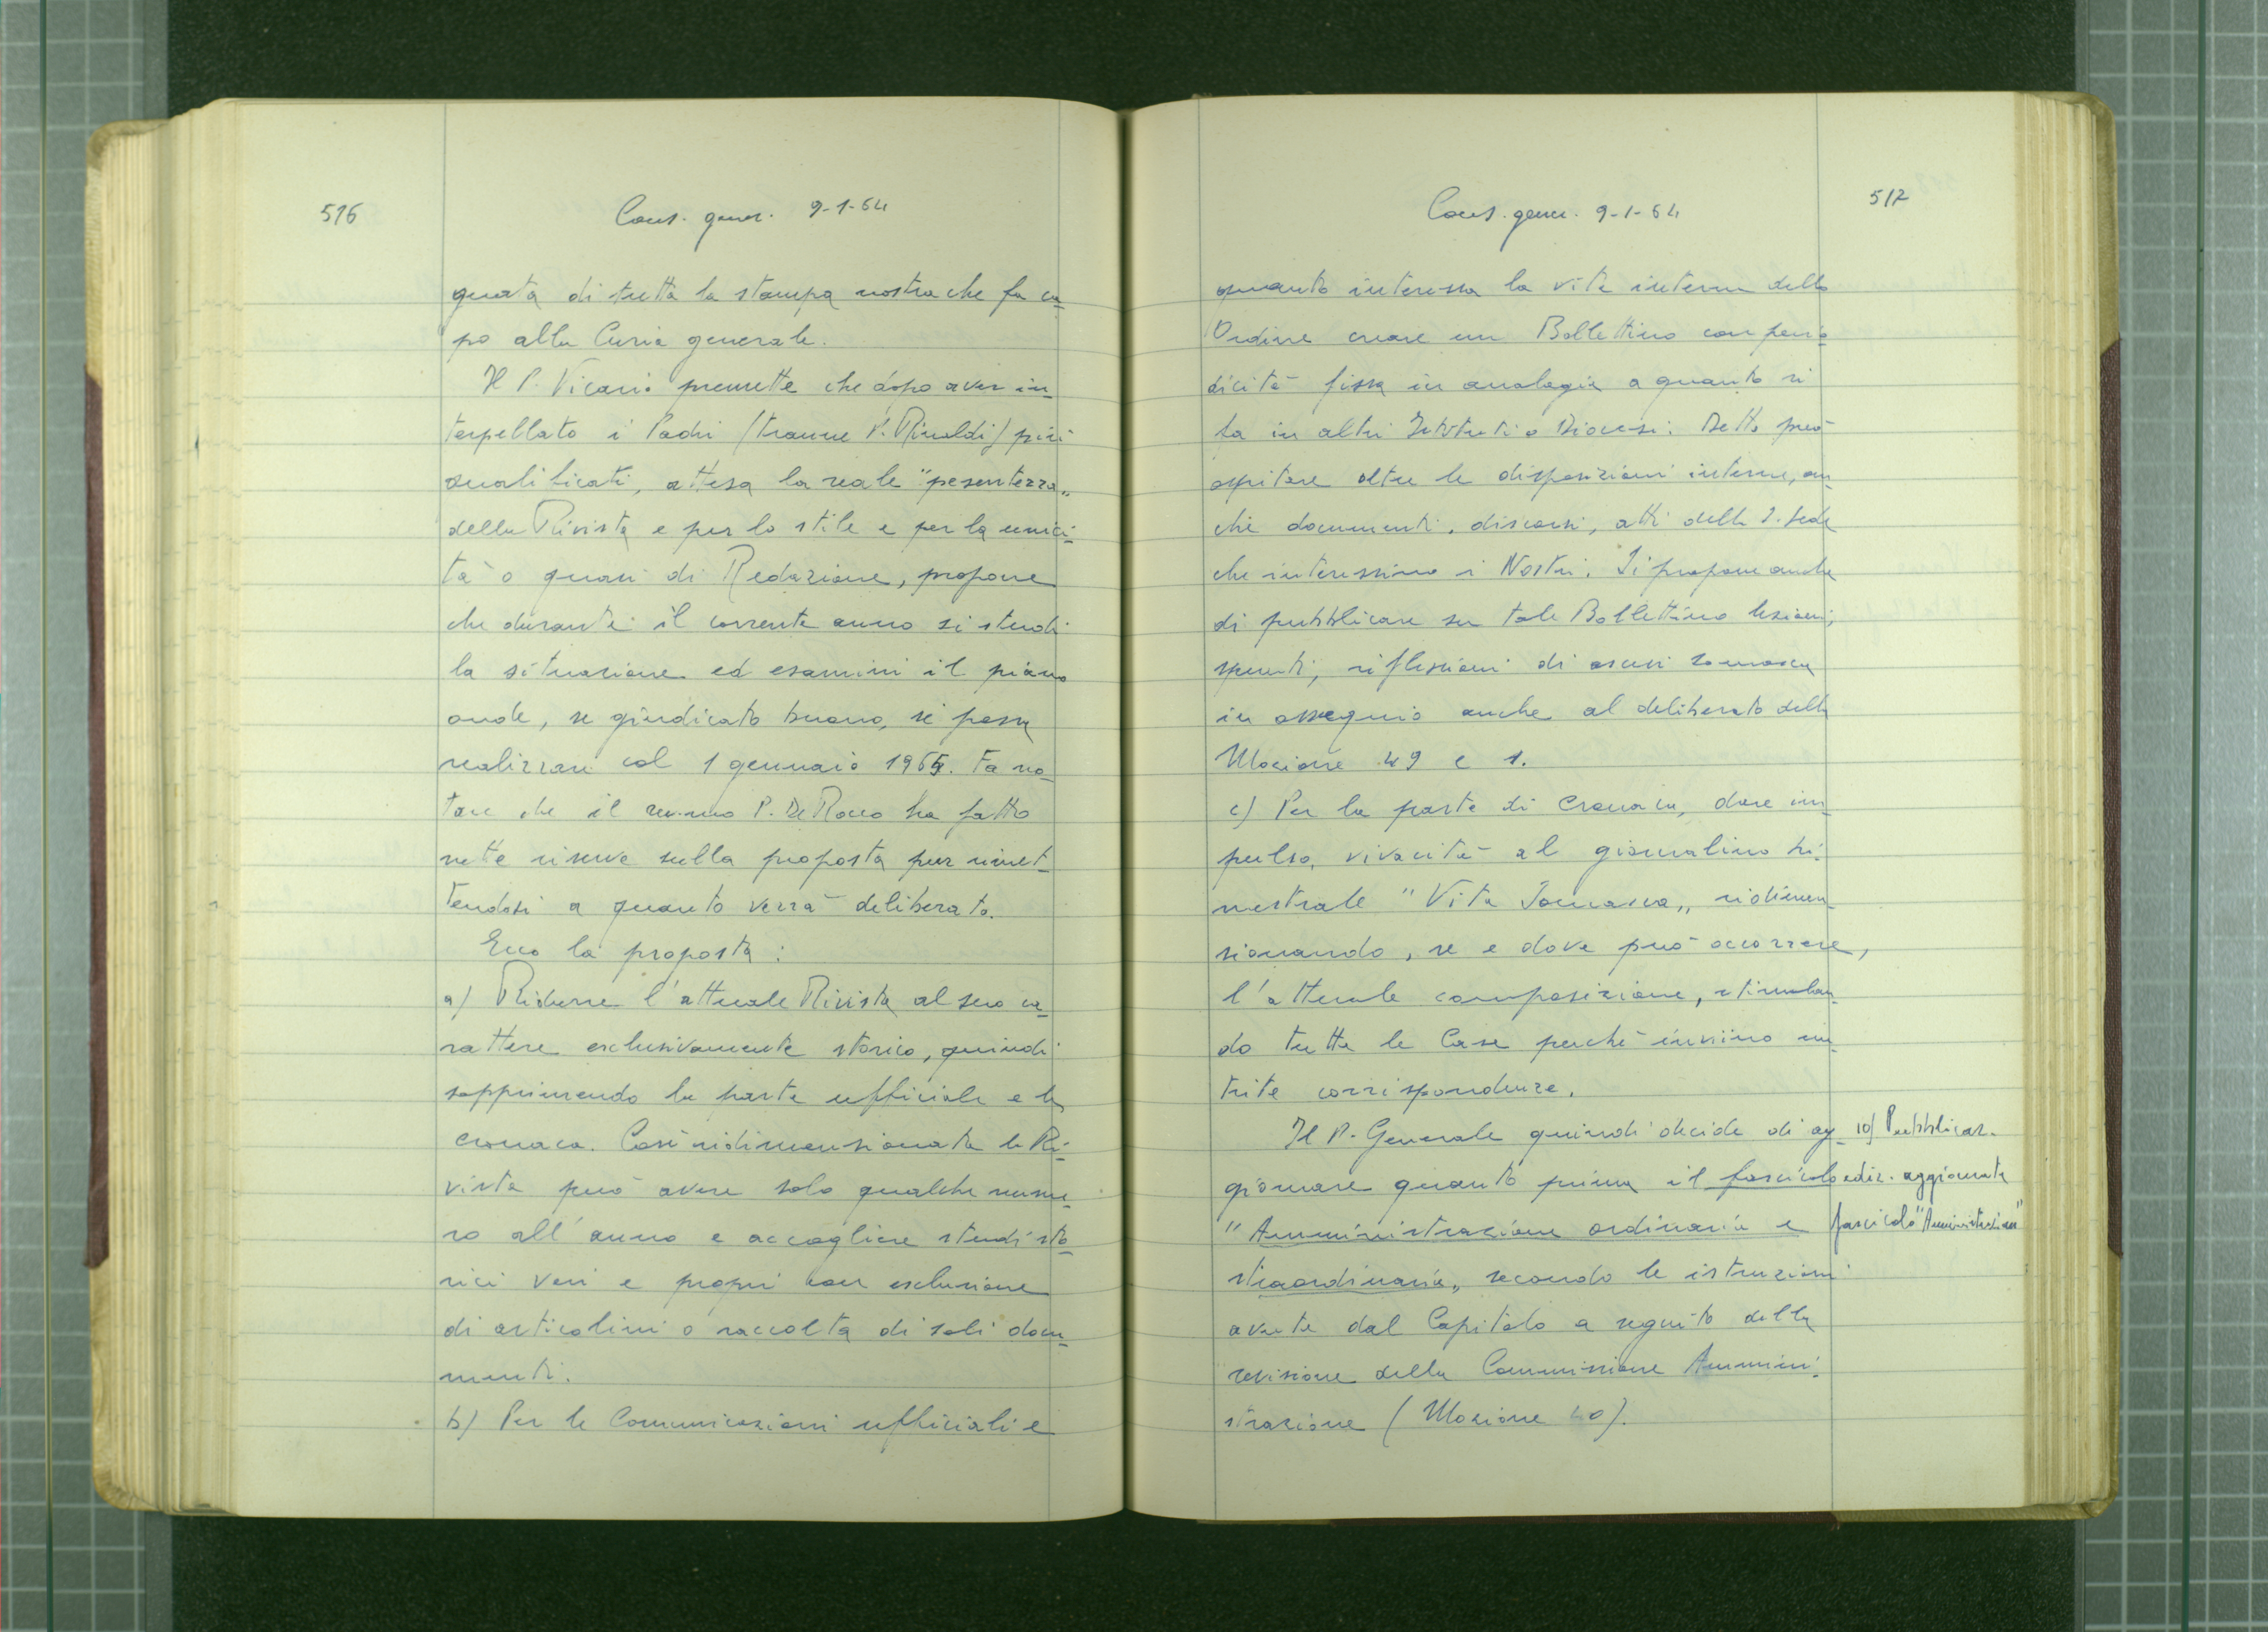 516
Cons. gener. 9-1-64
guata di tutta la stampa nostra che fa ca-
po alla Curia generale.
Il P. Vicario premette che dopo aver in-
terpellato i Padri (tranne P. Rinaldi) più
qualificati, attesa la reale "pesantezza"
della Rivista e per lo stile e per la unici-
tà o quasi di Redazione, propone
che durante il corrente anno si studi
la situazione ed esamini il piano
onde, se giudicato buono, si possa
realizzare col 1 gennaio 1965. Fa no-
tare che il rev.mo P. De Rocco ha fatto
nette riserve sulla proposta pur rimet-
tendosi a quanto verrà deliberato.
Ecco la proposta:
a) Ridurre l'attuale Rivista al suo ca-
rattere esclusivamente storico, quindi
sopprimendo la parte ufficiale e la
cronaca. Così ridimensionata la Ri-
vista può avere solo qualche nume-
ro all'anno e accogliere studi sto-
rici veri e propri con esclusione
di articolini o raccolta di soli docu-
menti.
b) Per le Comunicazioni ufficiali e
517
Cons. gener. 9-1-64
quanto interessa la vita interna dello
Ordine creare un Bollettino con perio-
dicità fissa in analogia a quanto si
fa in altri Istituti o Diocesi. Detto può
ospitare oltre le disposizioni interne, an-
che documenti, discorsi, atti della S. Sede
che interessino i Nostri. Si propone anche
di pubblicare su tale Bollettino lezioni,
spunti, riflessioni di ascesi somasca
in ossequio anche al deliberato della
Mozione 49 e 1.
c) Per la parte di Cronaca, dare im-
pulso, vivacità al giornalino tri-
mestrale "Vita Somasca", ridimen-
sionando, se e dove può occorrere,
l'attuale composizione, stimolan-
do tutte le Case perché inviino nu-
trite corrispondenze.
Il P. Generale quindi decide di ag-
giornare quanto prima il fascicolo
"Amministrazione ordinaria e
straordinaria", secondo le istruzioni
avute dal Capitolo a seguito della
revisione della Commissione Ammini-
strazione (Mozione 40).
10) Pubblicaz.
ediz. aggiornata
fascicolo "Amministrazione"